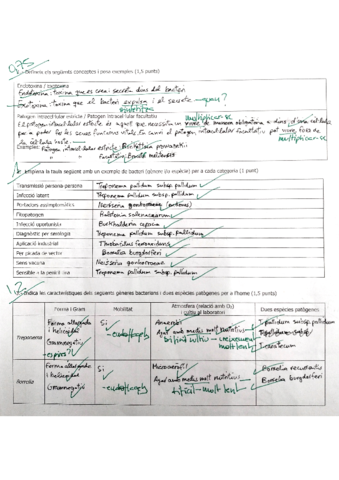 9,75
1. Defineix els següents conceptes i posa exemples (1,5 punts)
Endotoxina / Exotoxina
Endotoxina: toxina que es crea i secreta dins del bacteri
Exotoxina: toxina que el bacteri expulsa i al secreta
Patogen intracel·lular estricte / Patogen intracel·lular facultatiu
multiplicar-se
El patogen intracel·lular estricte és aquell que necessita viure de manera obligatòria a dins d'una cèl·lula
per a poder fer les seves funcions vitals. En canvi el patogen intracel·lular facultatiu pot viure fora de
la cèl·lula hoste.
multiplicar-se
Exemples: Patogen intracel·lular estricte:
Facultatiu:
Omplena la taula següent amb un exemple de bacteri (gènere i/o espècie) per a cada categoria (1 punt)
Transmissió persona-persona Treponema pallidum subsp. pallidum
Infecció latent Treponema pallidum subsp. pallidum
Portadors asimptomàtics Neisseria
Fitopatogen Ralstonia solanacearum
Infecció oportunista Burkholderia cepacia
Diagnòstic per serologia Treponema pallidum subsp. pallidum
Aplicació industrial Thiobacillus ferrooxidans
Per picada de vector Borrelia burgdorferi
Sens vacuna Neisseria gonhorroeae
Sensible a la penicil·lina Treponema pallidum subsp. pallidum
1,2
Indica les característiques dels següents gèneres bacterians i dues espècies patògenes per a l'home (1,5 punts)
Forma i Gram Mobilitat Atmosfera (relació amb O₂) i cultiu al laboratori Dues espècies patògenes
Treponema
Forma allargada
i helicoïdal
Gramnegatiu
Si
Anaerobi
Agar amb medis molt nutritius
molt lent
T. pallidum subsp. pallidum
Borrelia
Forma allargada
i helicoïdal
Gramnegatiu
Si
Agar amb medis molt nutritius
molt lent
Borrelia recurrentis
Borrelia burgdorferi